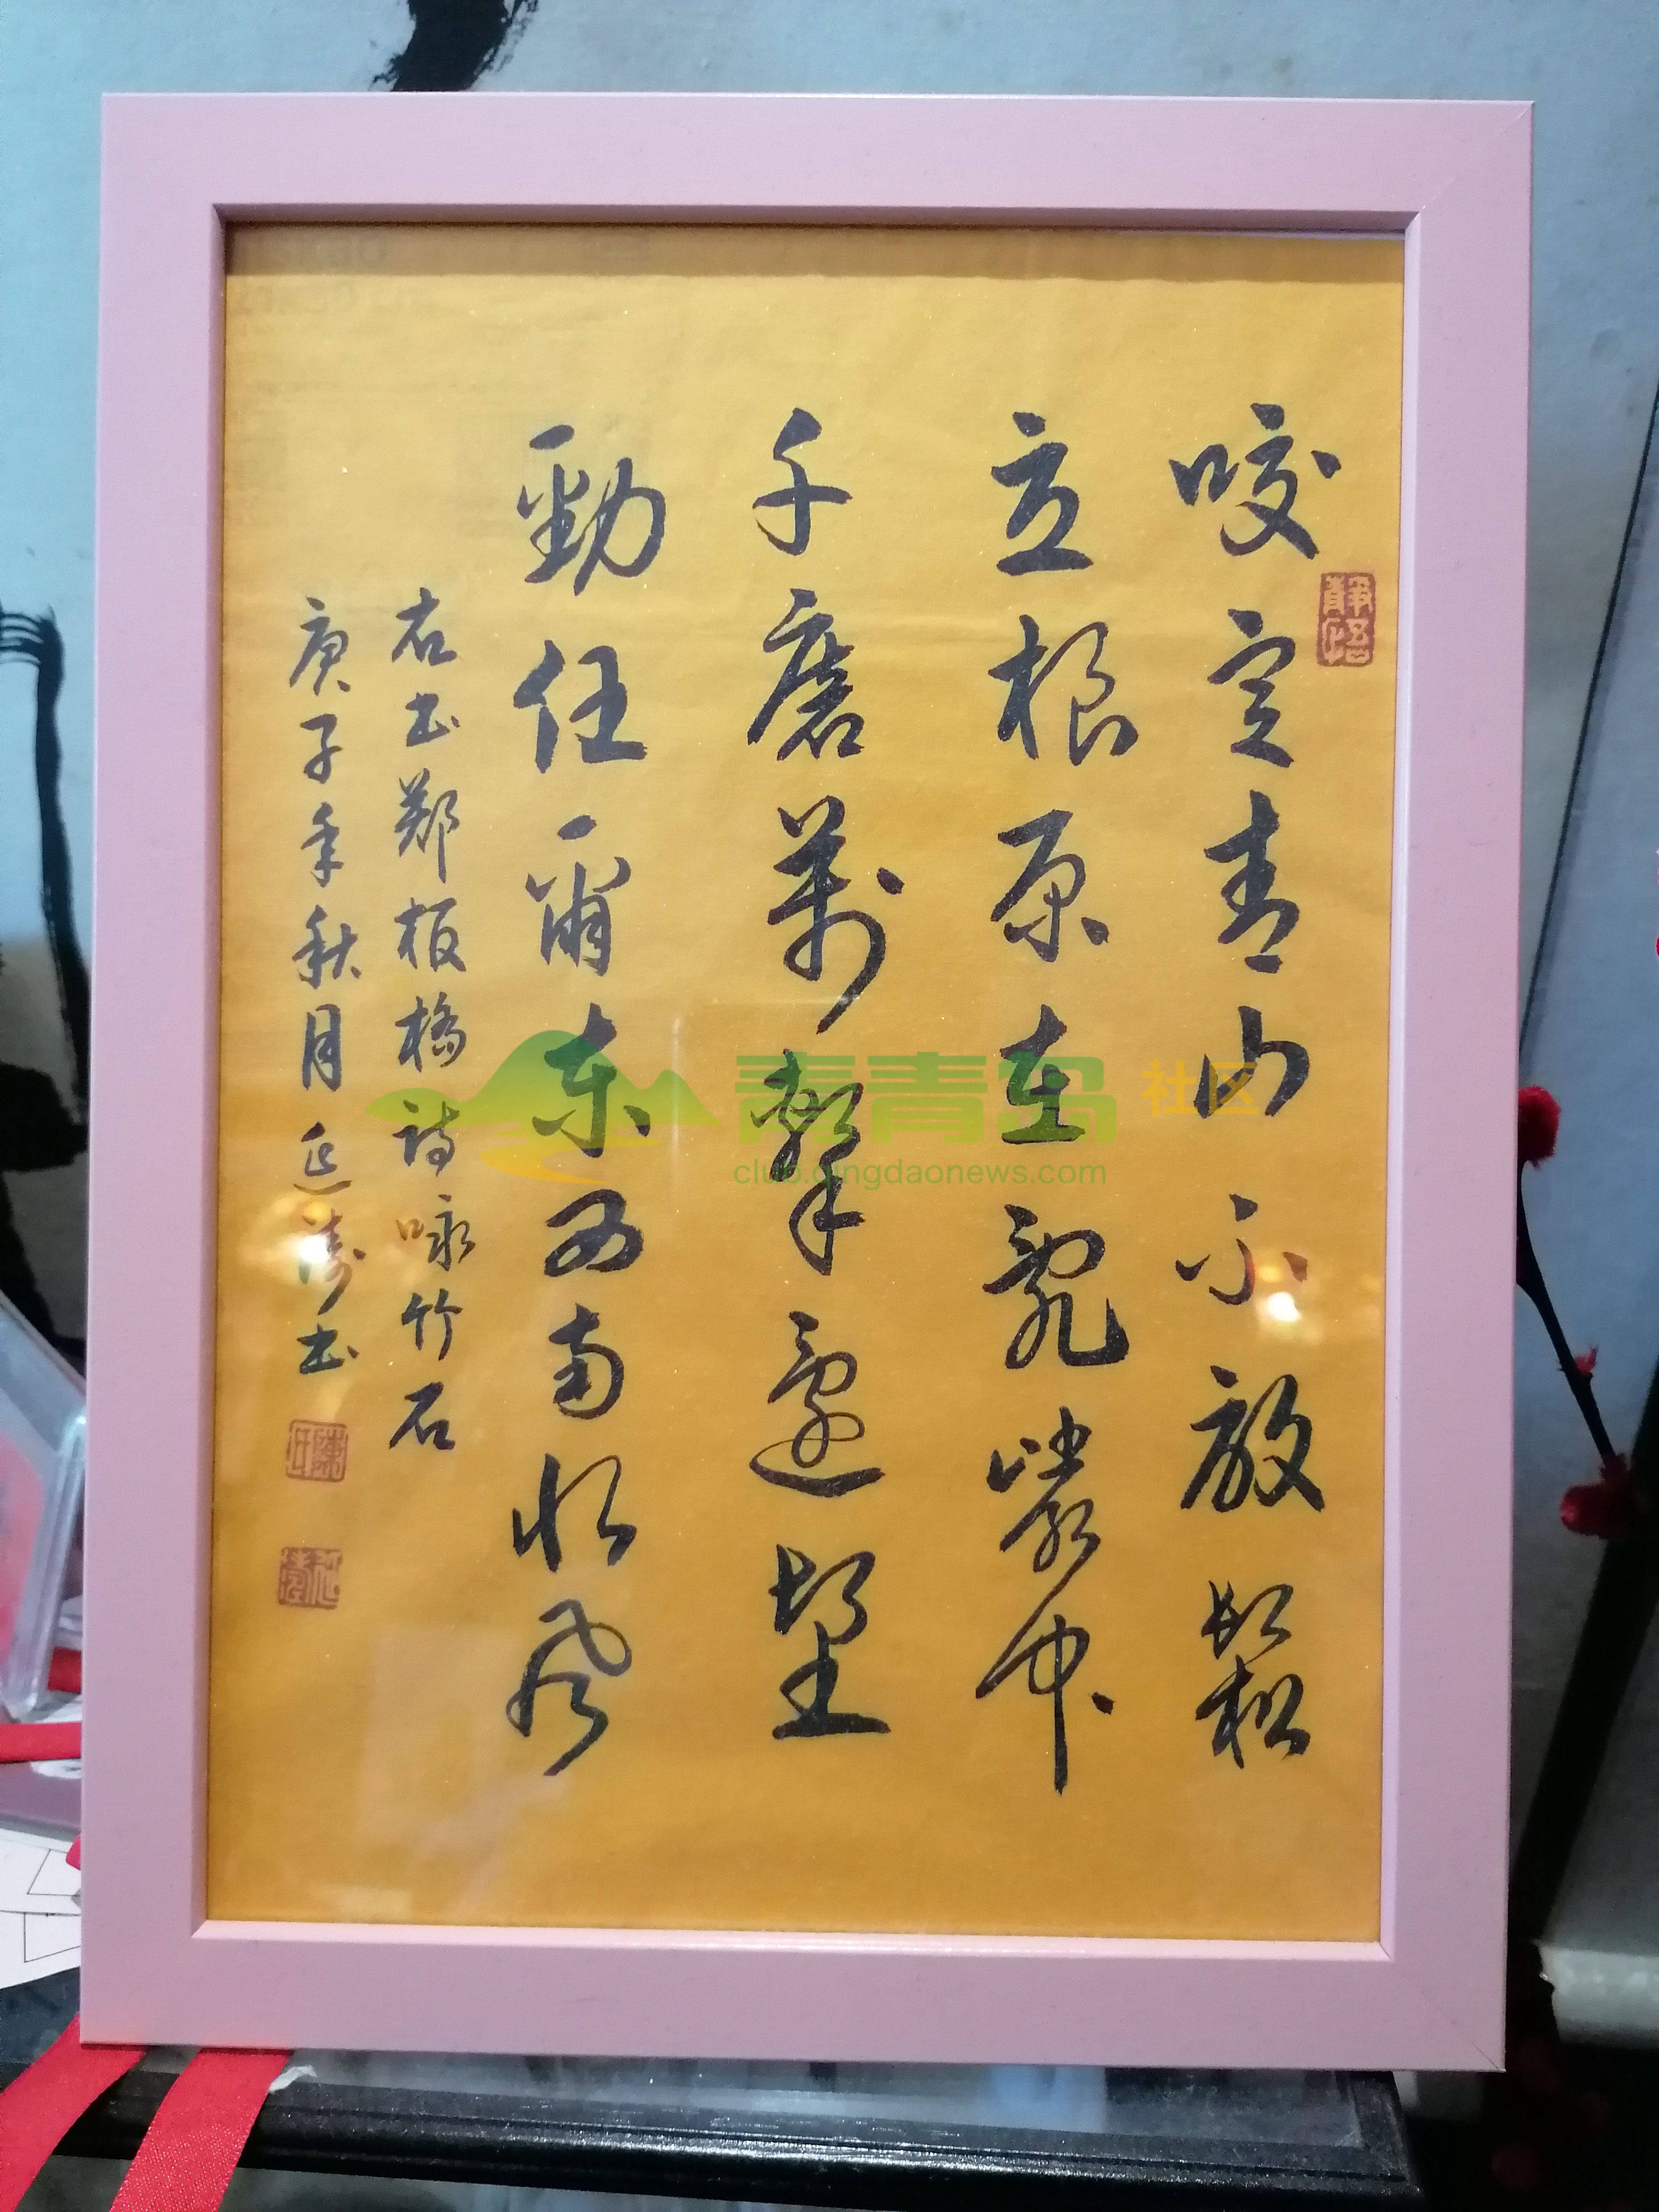 咬定青山不放鬆
立根原在亂巖中
千磨萬擊還堅
勁任爾东西南北风
右书郑板橋诗咏竹石
庚子年秋月延涛书
静悟
青青岛社区
club.qingdaonews.com